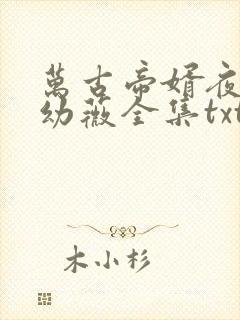 萬古帝婿夜
幼薇全集txt
木小杉